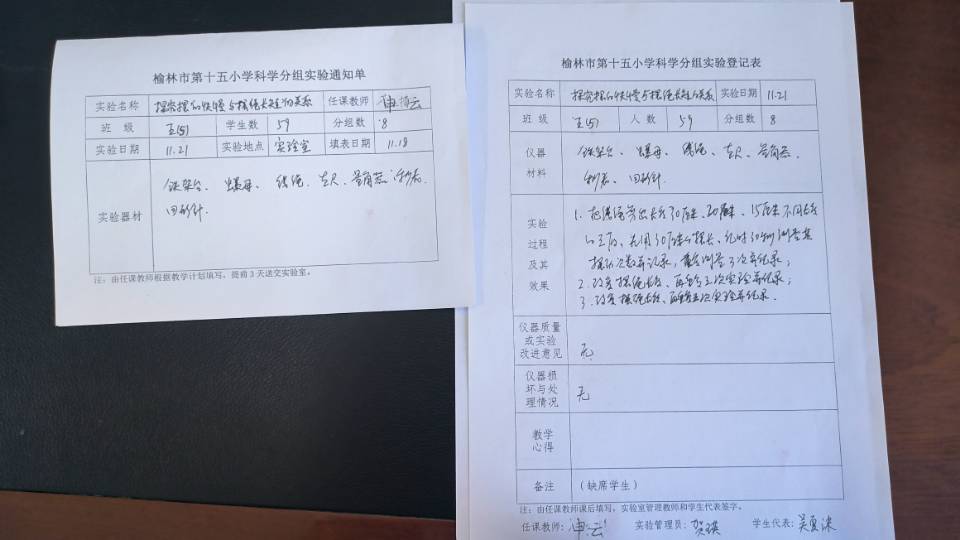 榆林市第十五小学科学分组实验通知单
实验名称 探究摆的快慢与摆绳长短的关系 任课教师
班 级 五(5) 学生数 59 分组数 8
实验日期 11.21 实验地点 实验室 填表日期 11.18
实验器材 铁架台、螺母、线绳、直尺、量角器、秒表、
回形针.
注：由任课教师根据教学计划填写，提前3天送交实验室。
榆林市第十五小学科学分组实验登记表
实验名称 探究摆的快慢与摆绳长短的关系 实验日期 11.21
班 级 五(5) 人 数 59 分组数 8
仪器
材料
铁架台、螺母、线绳、直尺、量角器、
秒表、回形针.
实验
过程
及其
效果
1. 把线绳 30厘米、20厘米、15厘米不同长
30厘米 摆长
摆动次数并记录，重复测量3次并记录；
2. 改变摆绳长度，再 三次实验并记录；
3. 改变摆绳长度，再 三次实验并记录.
仪器质量
或实验
改进意见
无
仪器损
坏与处
理情况
无
教学
心得
备注 （缺席学生）
注：由任课教师课后填写，实验室管理教师和学生代表签字。
任课教师： 实验管理员： 学生代表：